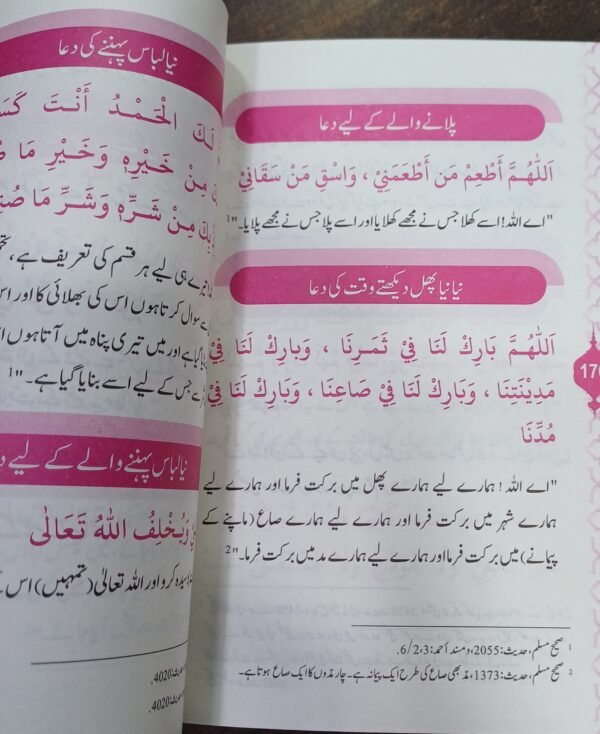 پلانے والے کے لیے دعا
اَللّٰهُمَّ أَطْعِمْ مَن أَطْعَمَنِيْ ، وَاسْقِ مَنْ سَقَانِيْ
"اے اللہ! اسے کھلا جس نے مجھے کھلایا اور اسے پلا جس نے مجھے پلایا۔"1
نیا نیا پھل دیکھتے وقت کی دعا
اَللّٰهُمَّ بَارِكْ لَنَا فِيْ ثَمَرِنَا ، وَبَارِكْ لَنَا فِيْ
مَدِيْنَتِنَا ، وَبَارِكْ لَنَا فِيْ صَاعِنَا ، وَبَارِكْ لَنَا فِيْ
مُدِّنَا
"اے اللہ ! ہمارے لیے ہمارے پھل میں برکت فرما اور ہمارے لیے
ہمارے شہر میں برکت فرما اور ہمارے لیے ہمارے صاع (ماپنے کے
پیمانے) میں برکت فرما اور ہمارے لیے ہمارے مد میں برکت فرما۔"2
1 صحیح مسلم، حدیث:2055، ومسند أحمد:6/2،3.
2 صحیح مسلم، حدیث:1373، مُد بھی صاع کی طرح ایک پیمانہ ہے۔ چار مُدّوں کا ایک صاع ہوتا ہے۔
نیا لباس پہننے کی دعا
لَكَ الْحَمْدُ أَنْتَ
مِنْ خَيْرِهٖ وَخَيْرِ مَا
مِنْ شَرِّهٖ وَشَرِّ مَا
ہی لیے ہر قسم کی تعریف ہے،
سوال کرتا ہوں اس کی بھلائی کا اور
ہے اور میں تیری پناہ میں آتا ہوں
جس کے لیے اسے بنایا گیا ہے۔"1
نیا لباس پہننے والے کے لیے
وَيُخْلِفُ اللّٰهُ تَعَالٰى
کرو اور اللہ تعالیٰ (تمہیں) اس
4020.
4020.